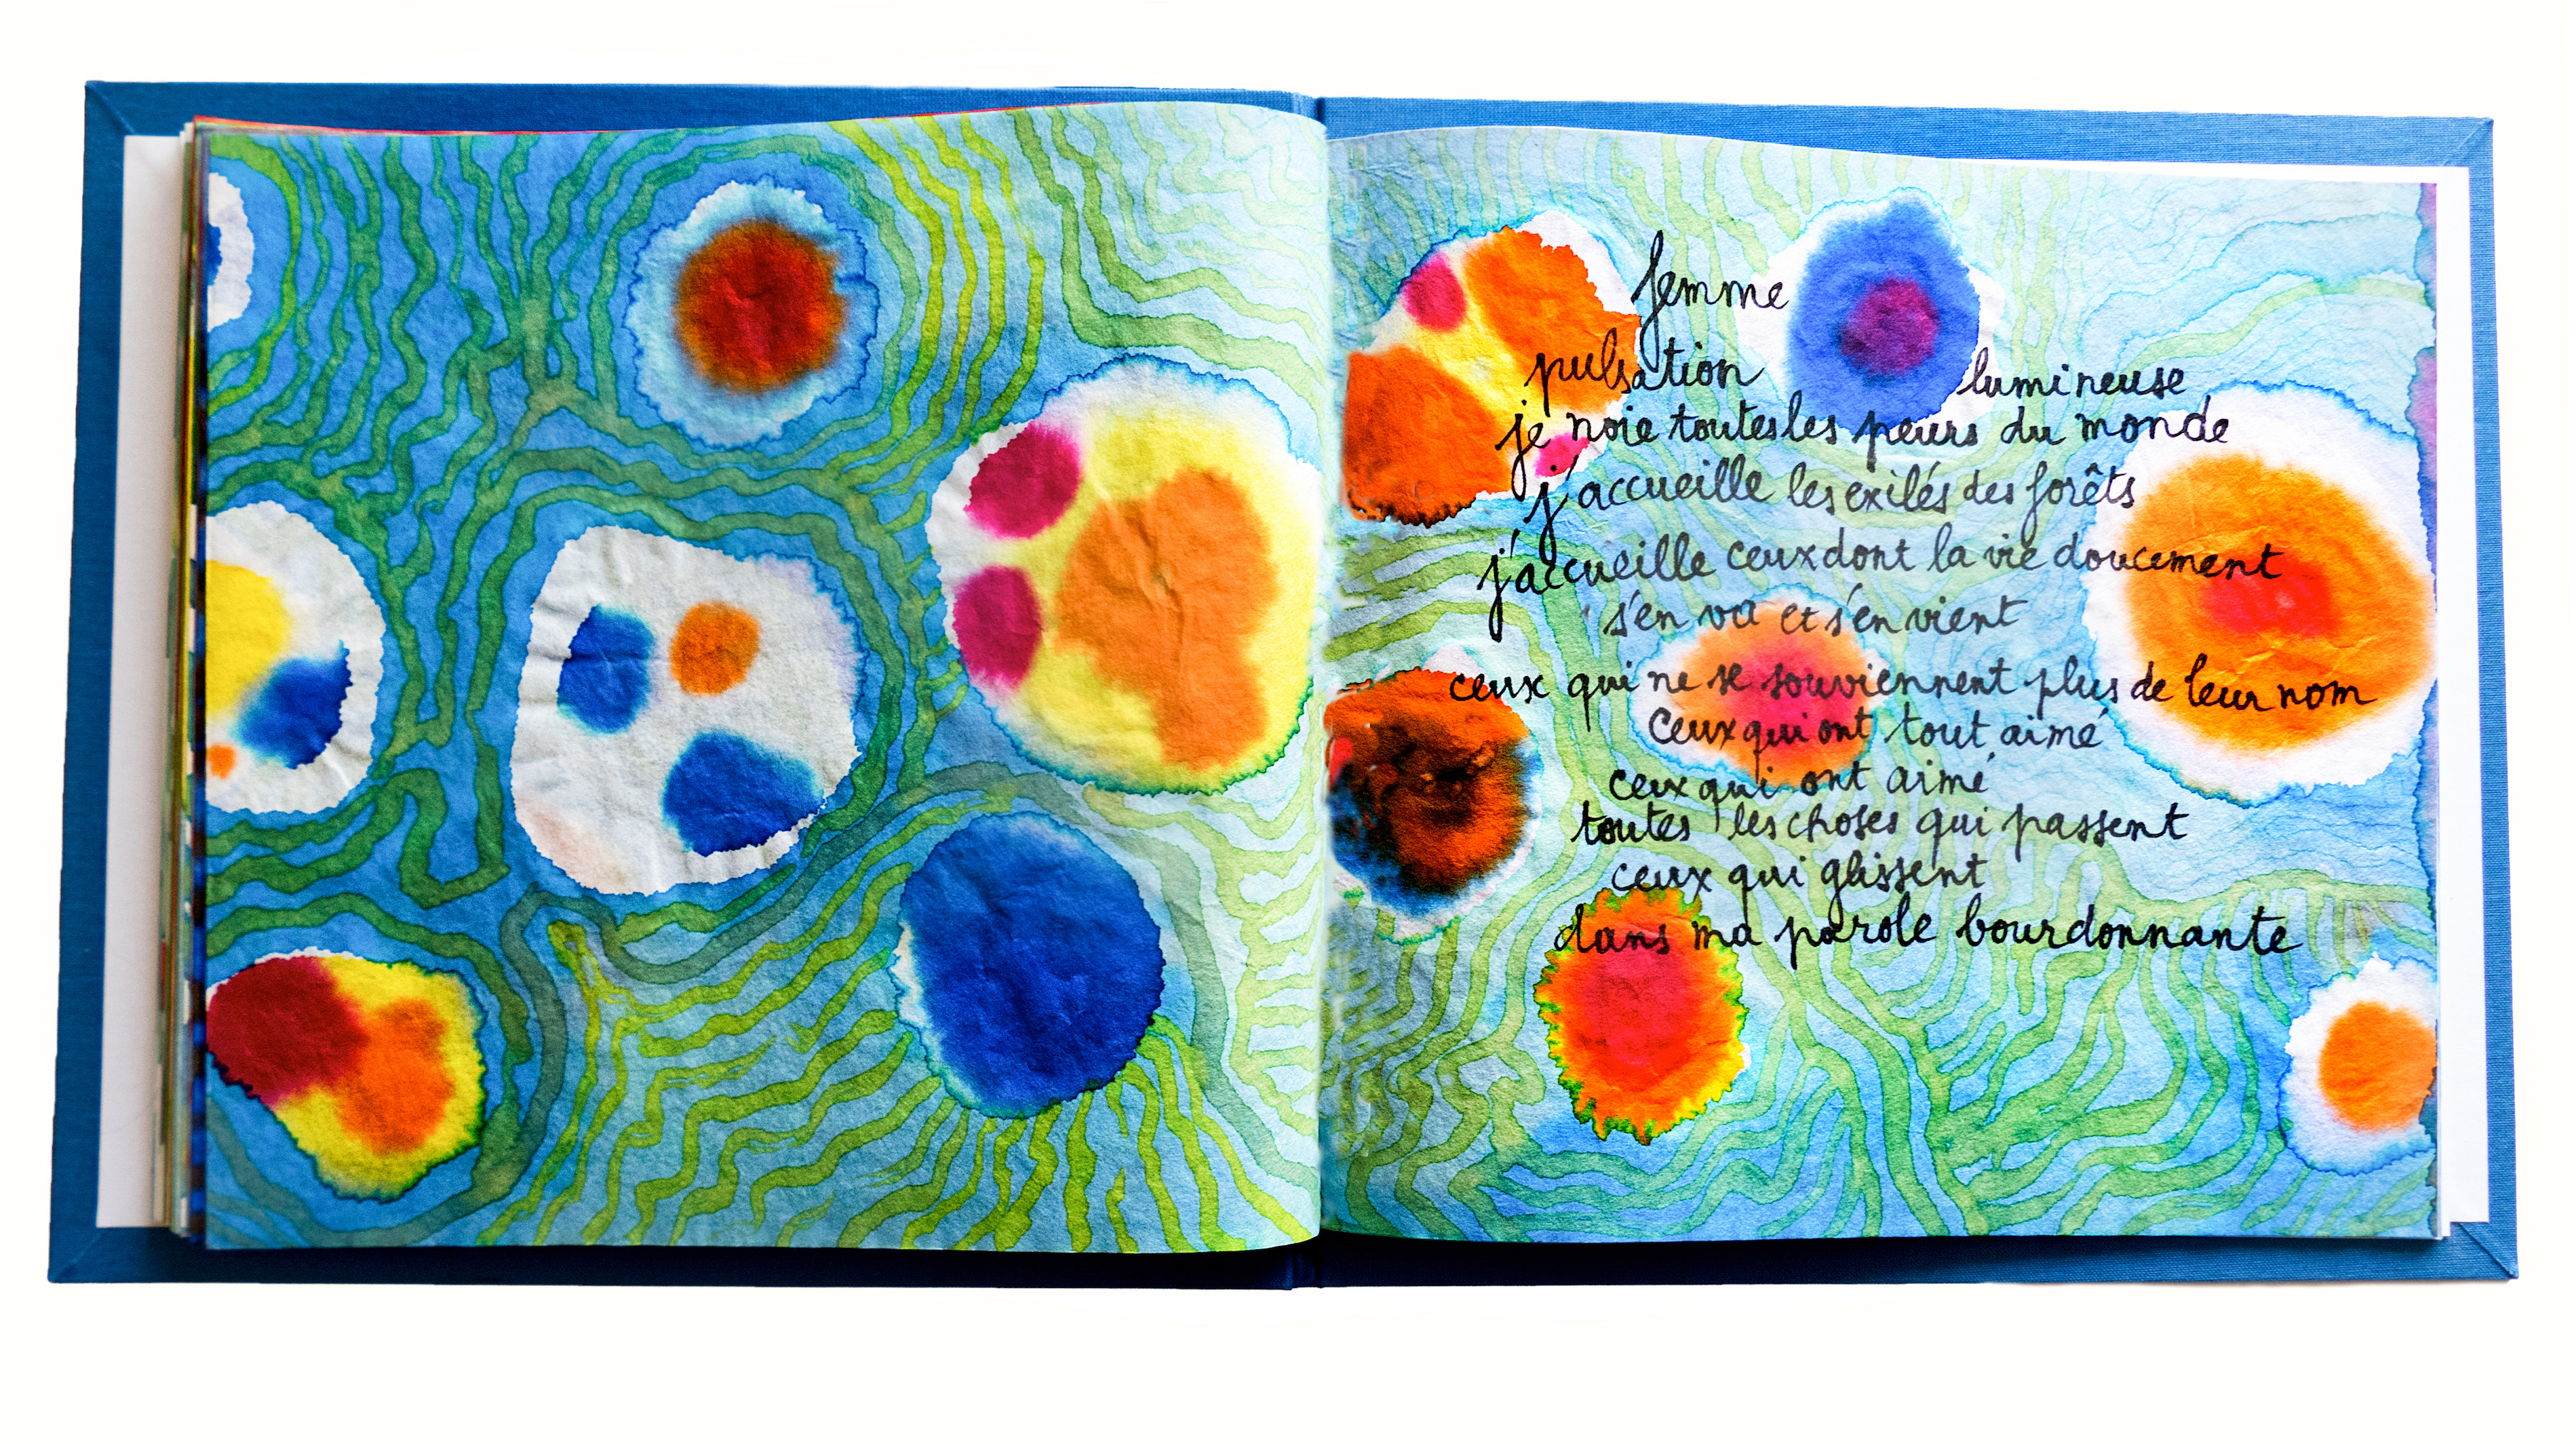 femme
pulsation lumineuse
je noie toutes les peurs du monde
j'accueille les exilés des forêts
j'accueille ceux dont la vie doucement
s'en va et s'en vient
ceux qui ne se souviennent plus de leur nom
ceux qui ont tout aimé
ceux qui ont aimé
toutes les choses qui passent
ceux qui glissent
dans ma parole bourdonnante